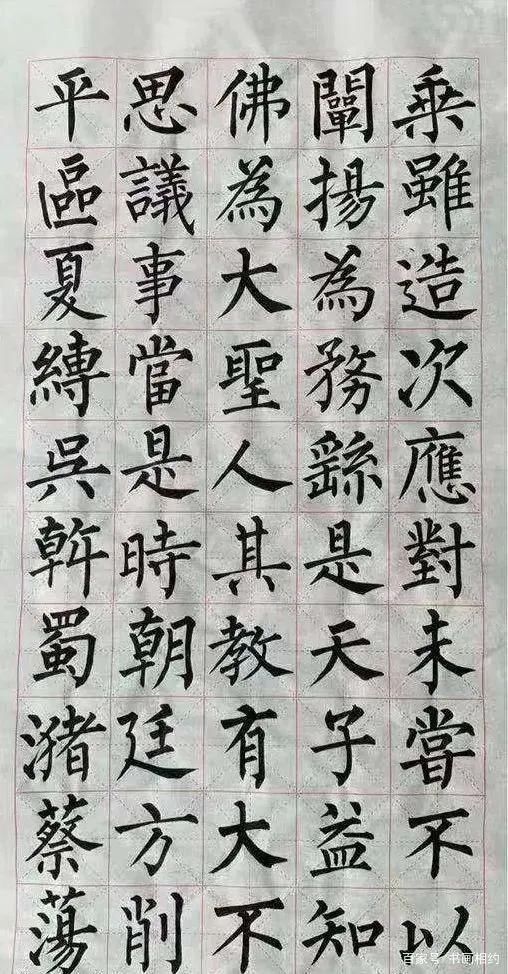 乘雖造次應對未嘗不以
闡揚為務繇是天子益知
佛為大聖人其教有大不
思議事當是時朝廷方削
平區夏縛吳斡蜀瀦蔡蕩
百家号/书画相约